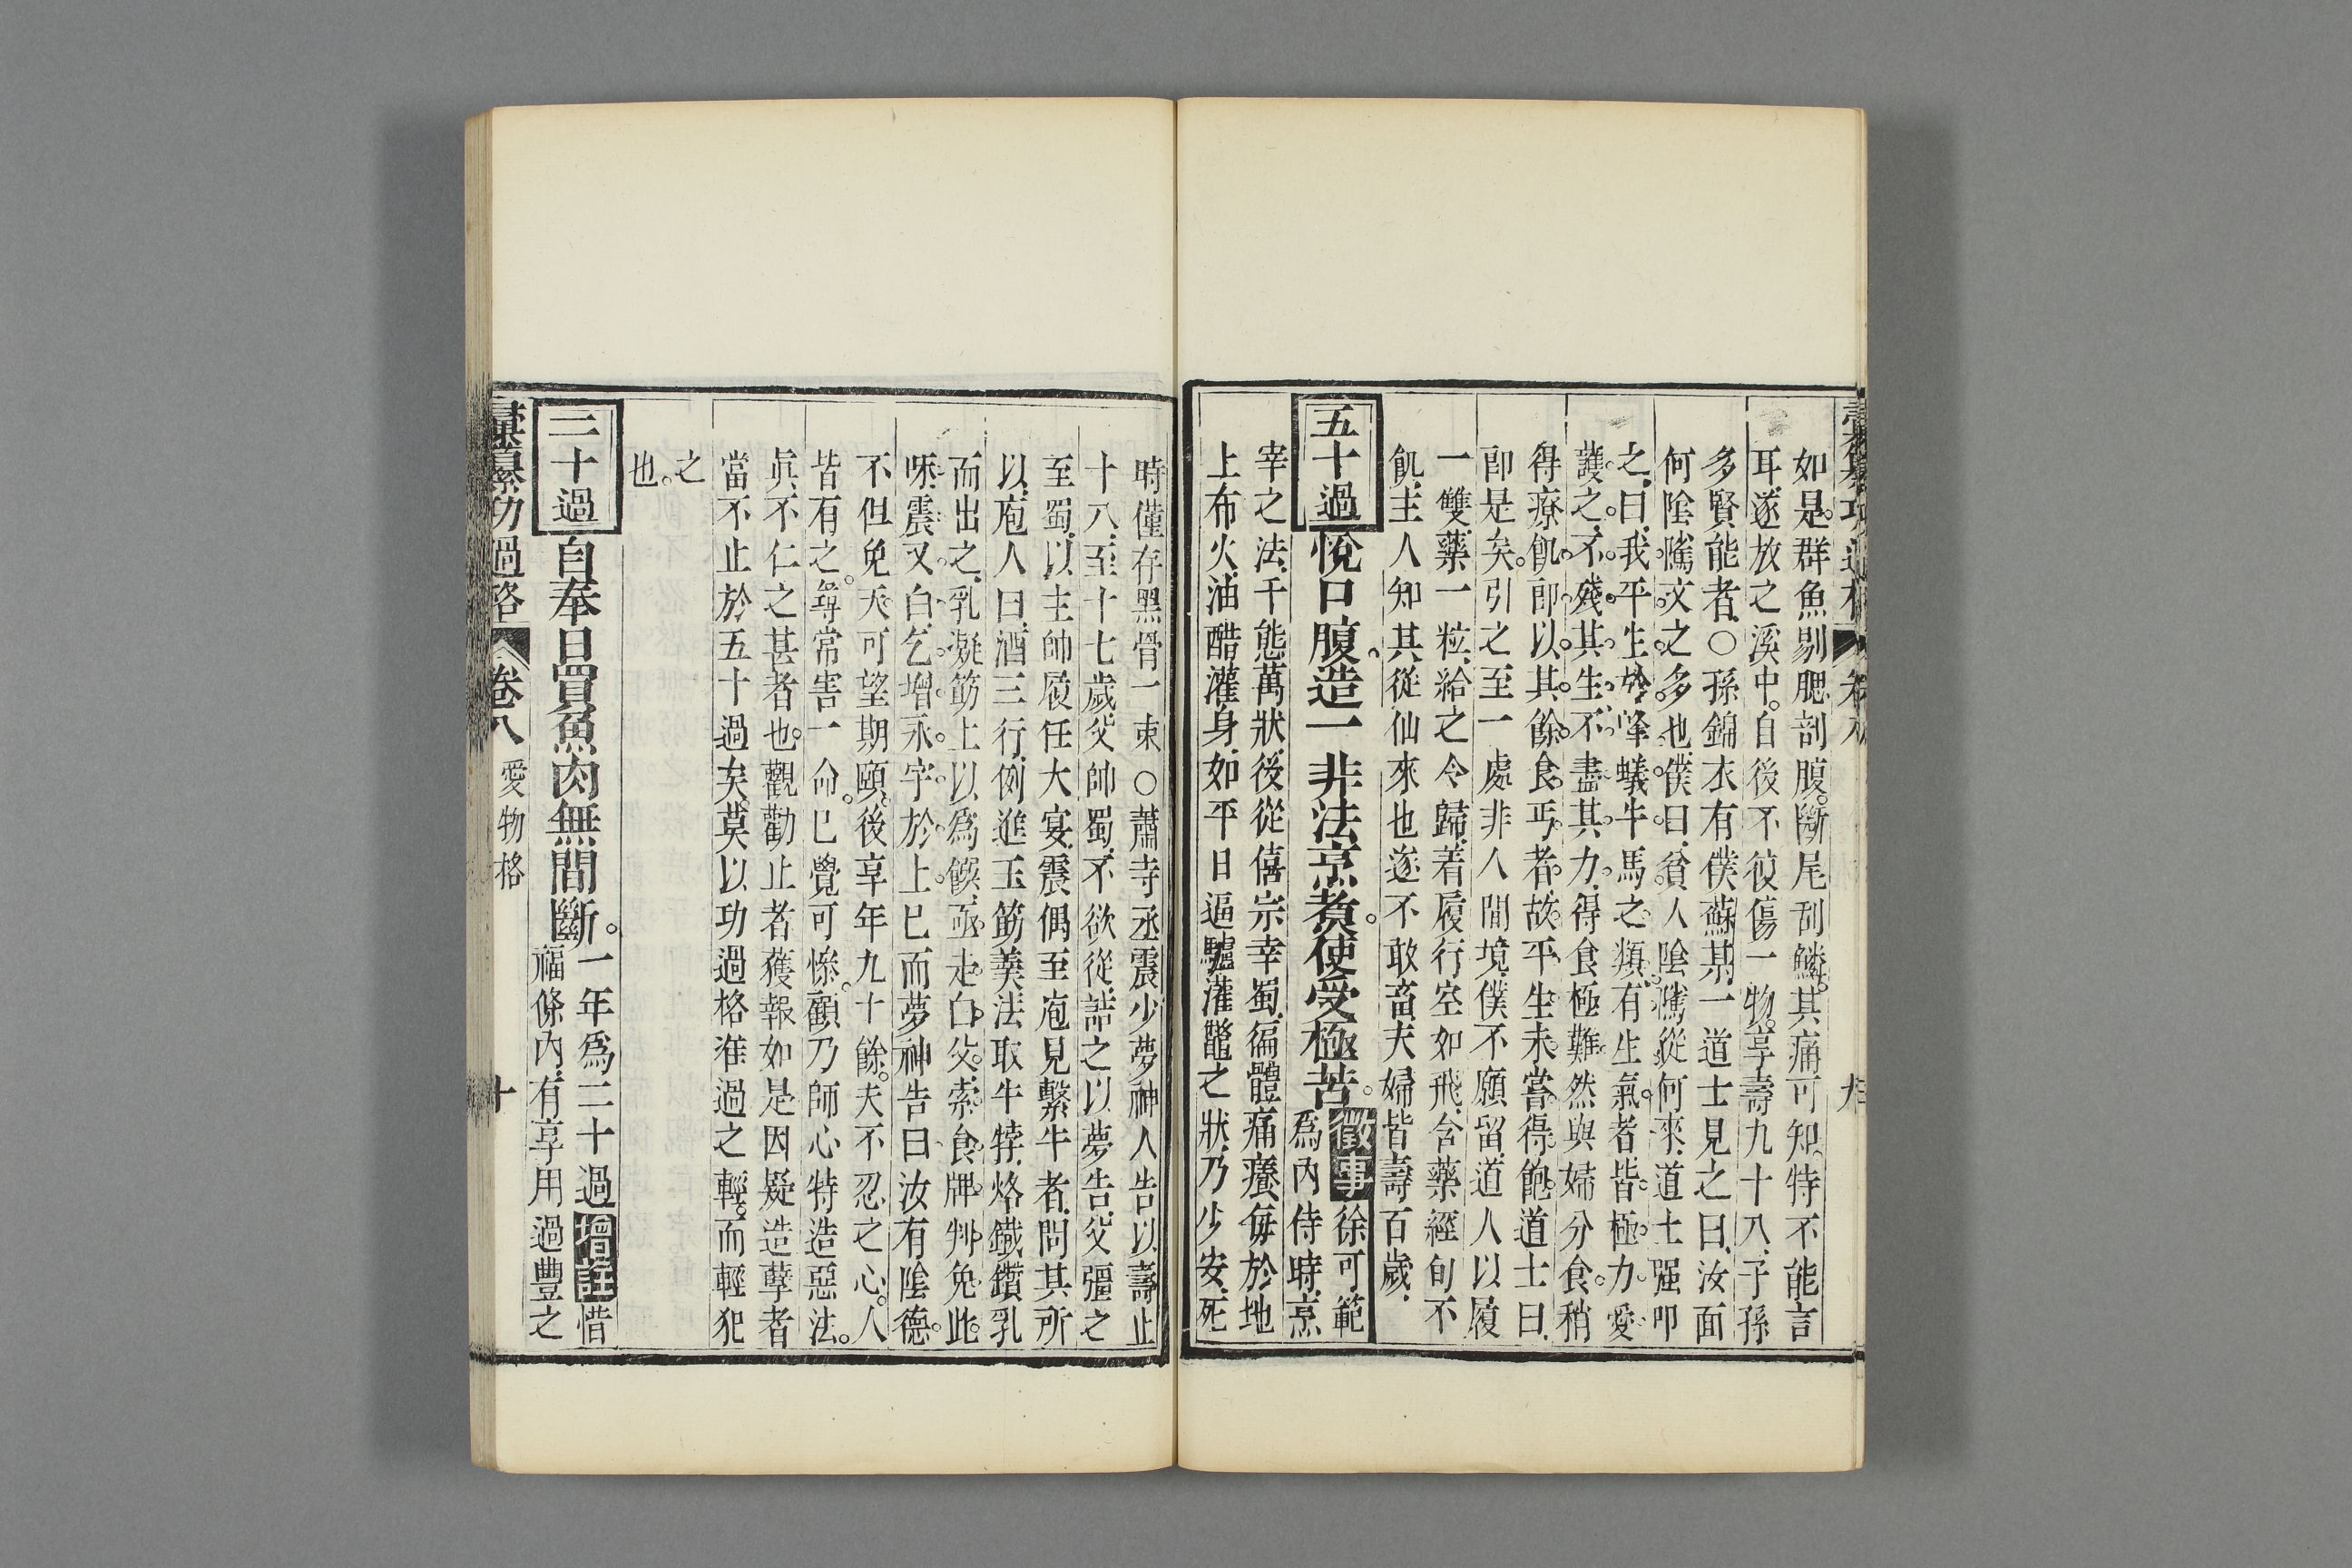 如是群魚剔腮剖腹斷尾刮鱗其痛可知特不能言
耳遂放之溪中自後不彼傷一物享壽九十八子孫
多賢能者○孫錦衣有僕蘇某一道士見之曰汝面
何陰隲文之多也僕曰貧人陰隲從何來道士强叩
之曰我平生於蜂蟻牛馬之類有生氣者皆極力愛
護之不殘其生不盡其力得食極難然與婦分食稍
得療飢即以其餘食丐者故平生未嘗得飽道士曰
即是矣引之至一處非人間境僕不願留道人以履
一雙藥一粒給之令歸着履行空如飛含藥經旬不
飢主人知其從仙來也遂不敢畜夫婦皆壽百歲
五十過 悅口腹造一非法烹煑使受極苦 徵事 徐可範
爲內侍時烹
宰之法千態萬狀後從僖宗幸蜀徧體痛癢每於地
上布火油醋灌身如平日逼驢灌鼈之狀乃少安死
時僅存黑骨一束○蕭寺丞震少夢神人告以壽止
十八至十七歲父帥蜀不欲從詰之以夢告父彊之
至蜀以主帥履任大宴震偶至庖見繫牛者問其所
以庖人曰酒三行例進玉筯羹法取牛牸烙鐵鑽乳
而出之乳凝筯上以爲饌亟走白父索食牌判免此
味震又白乞增永字於上已而夢神告曰汝有陰德
不但免夭可望期頤後享年九十餘夫不忍之心人
皆有之尋常害一命已覺可慘顧乃師心特造惡法
眞不仁之甚者也觀勸止者獲報如是因疑造孽者
當不止於五十過矣莫以功過格准過之輕而輕犯
之
也
二十過 自奉日買魚肉無間斷 一年爲二十過 增註 惜
福條內有享用過豐之
彙纂功過格 卷八 愛物格 十